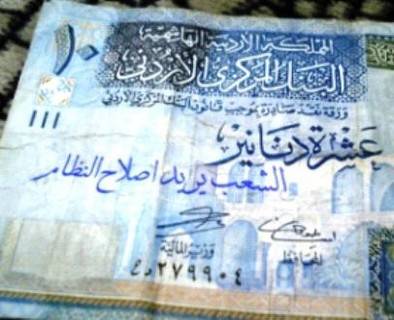 المملكة الأردنية الهاشمية
١٠
البنك المركزي الأردني
ورقة نقد صادرة بموجب قانون البنك المركزي الأردني
١١١
عشرة دنانير
الشعب يريد اصلاح النظام
وزير المالية
المحافظ
٢٧٩٩٠٤